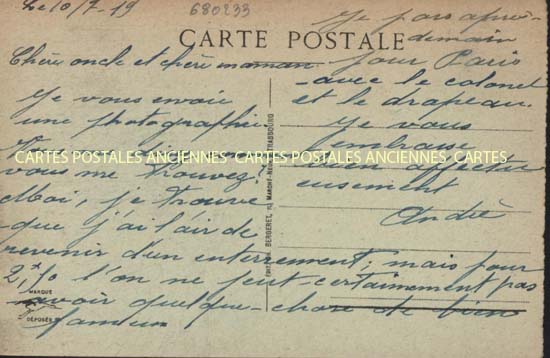 Le 10/7-19
680233
CARTE POSTALE
Chère oncle et chère maman
Je vous envoie
une photographie
vous me trouvez?
Moi, je trouve
que j'ai l'air de
revenir d'un enterrement; mais pour
2,10 l'on ne peut certainement pas
avoir quelque-chose de bien
fameux
Je pars après-
demain
pour Paris
avec le colonel
et le drapeau.
Je vous
embrasse
bien affectu
eusement
André
CARTES POSTALES ANCIENNES CARTES POSTALES ANCIENNES CARTES
BERGERET, STRASBOURG
MARQUE
DÉPOSÉE